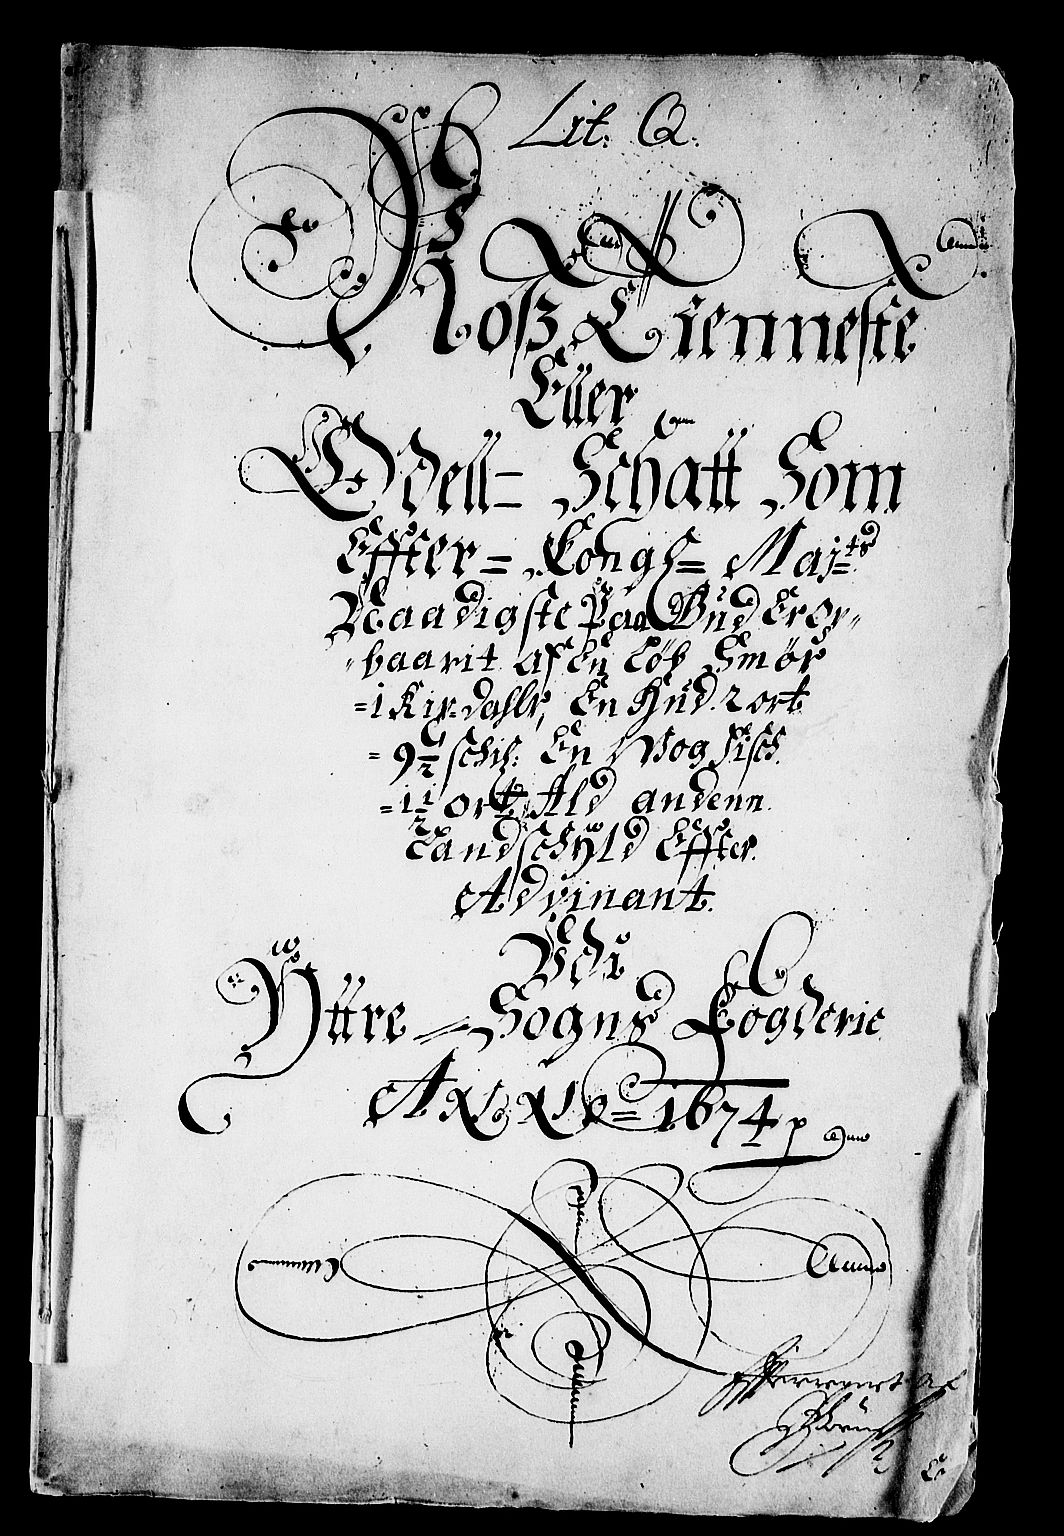 Lit: Q.
Roß Tienneste
Eller
Odell= Schatt Som
Effter= Kongl= Maj=ts
Naadigste Paa Bud Eror„
„baarit af En Løb Smør
=1 Rix=dahlr, En Hud 2 ort
=9½ schil: En Wog Fisch
=1½ ort Ald andenn
Landschÿld Effter
Advinant.
Udi
Ÿttre=Sogns Fogderie
A = 1674 p